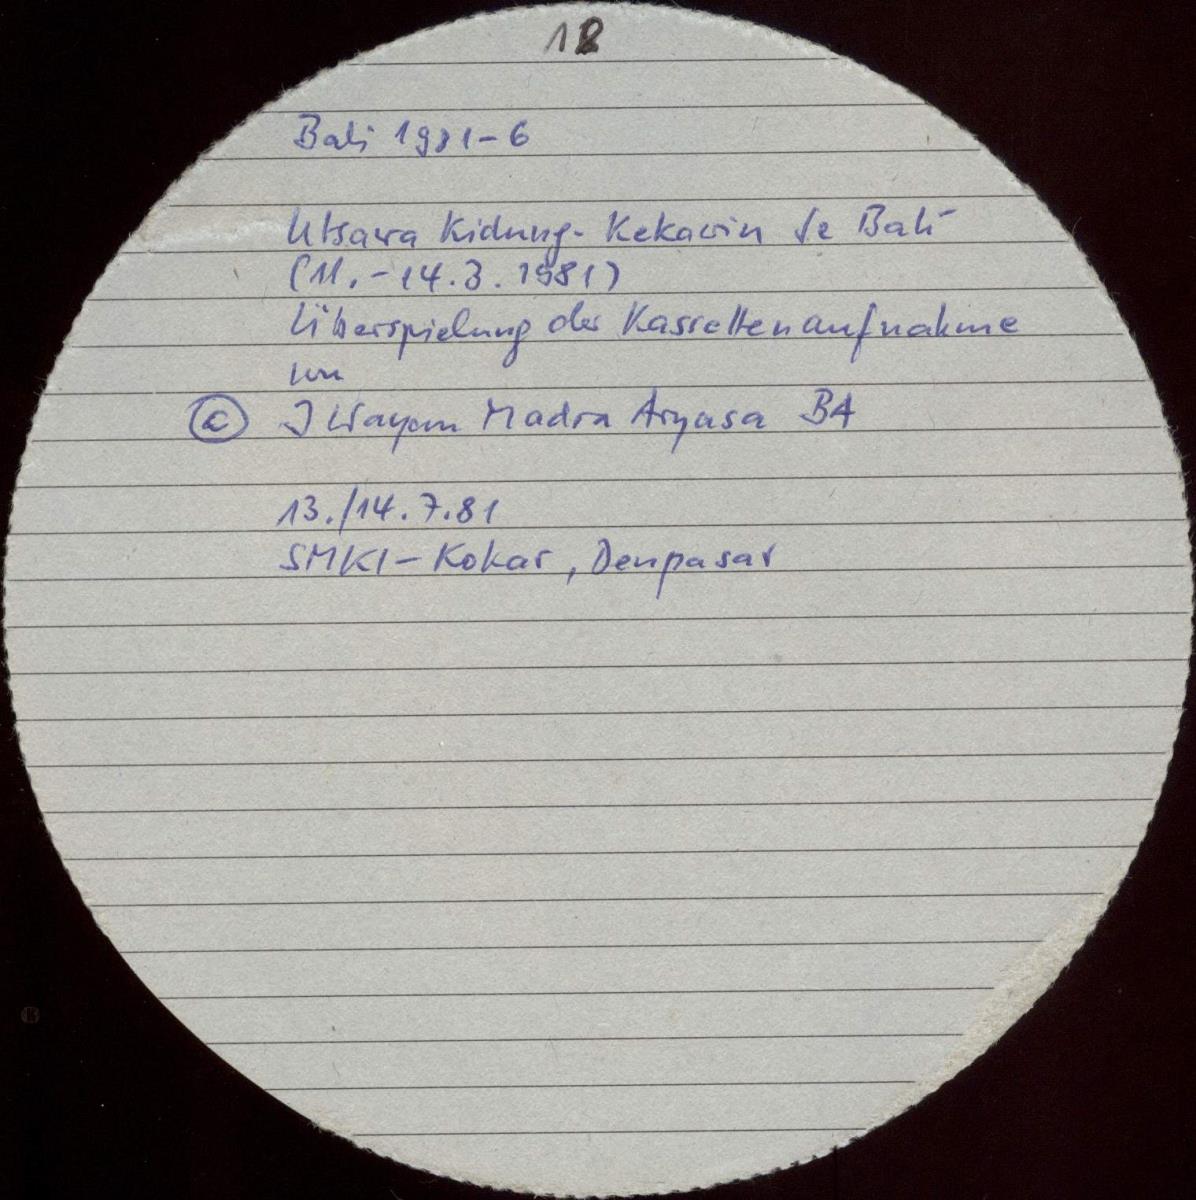 18
Bali 1981-6
Utsava Kidung-Kekawin se Bali
(11.-14.3.1981)
Überspielung der Kassettenaufnahme
von
© I Wayan Madra Aryasa BA
13./14.7.81
SMKI-Kokar, Denpasar